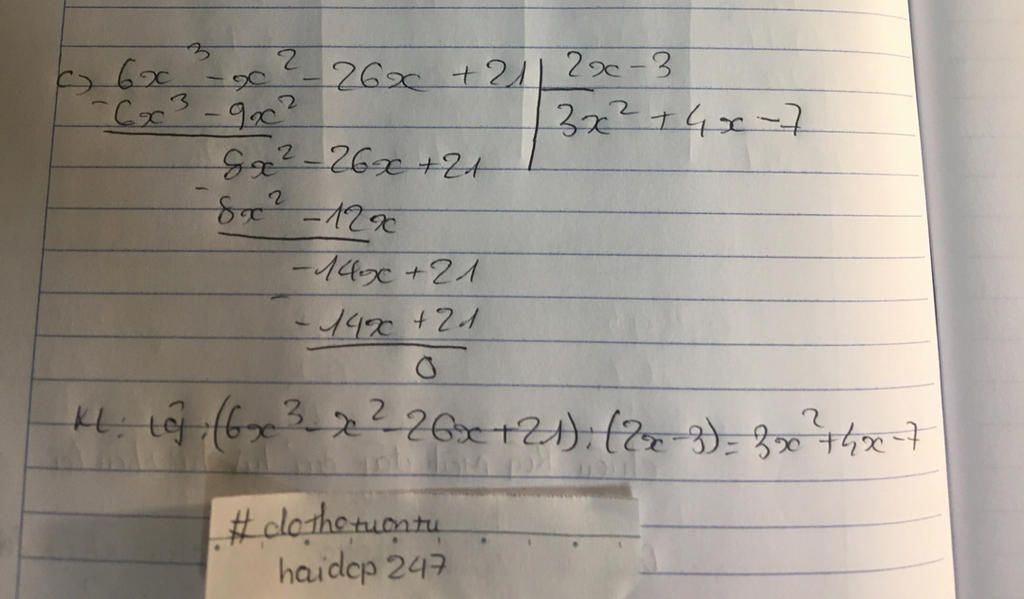 c) 6x³ - x² - 26x + 21 | 2x - 3
- 6x³ - 9x² | 3x² + 4x - 7
8x² - 26x + 21
- 8x² - 12x
-14x + 21
- -14x + 21
0
KL: Vậy: (6x³ - x² - 26x + 21) : (2x - 3) = 3x² + 4x - 7
haidcp 247